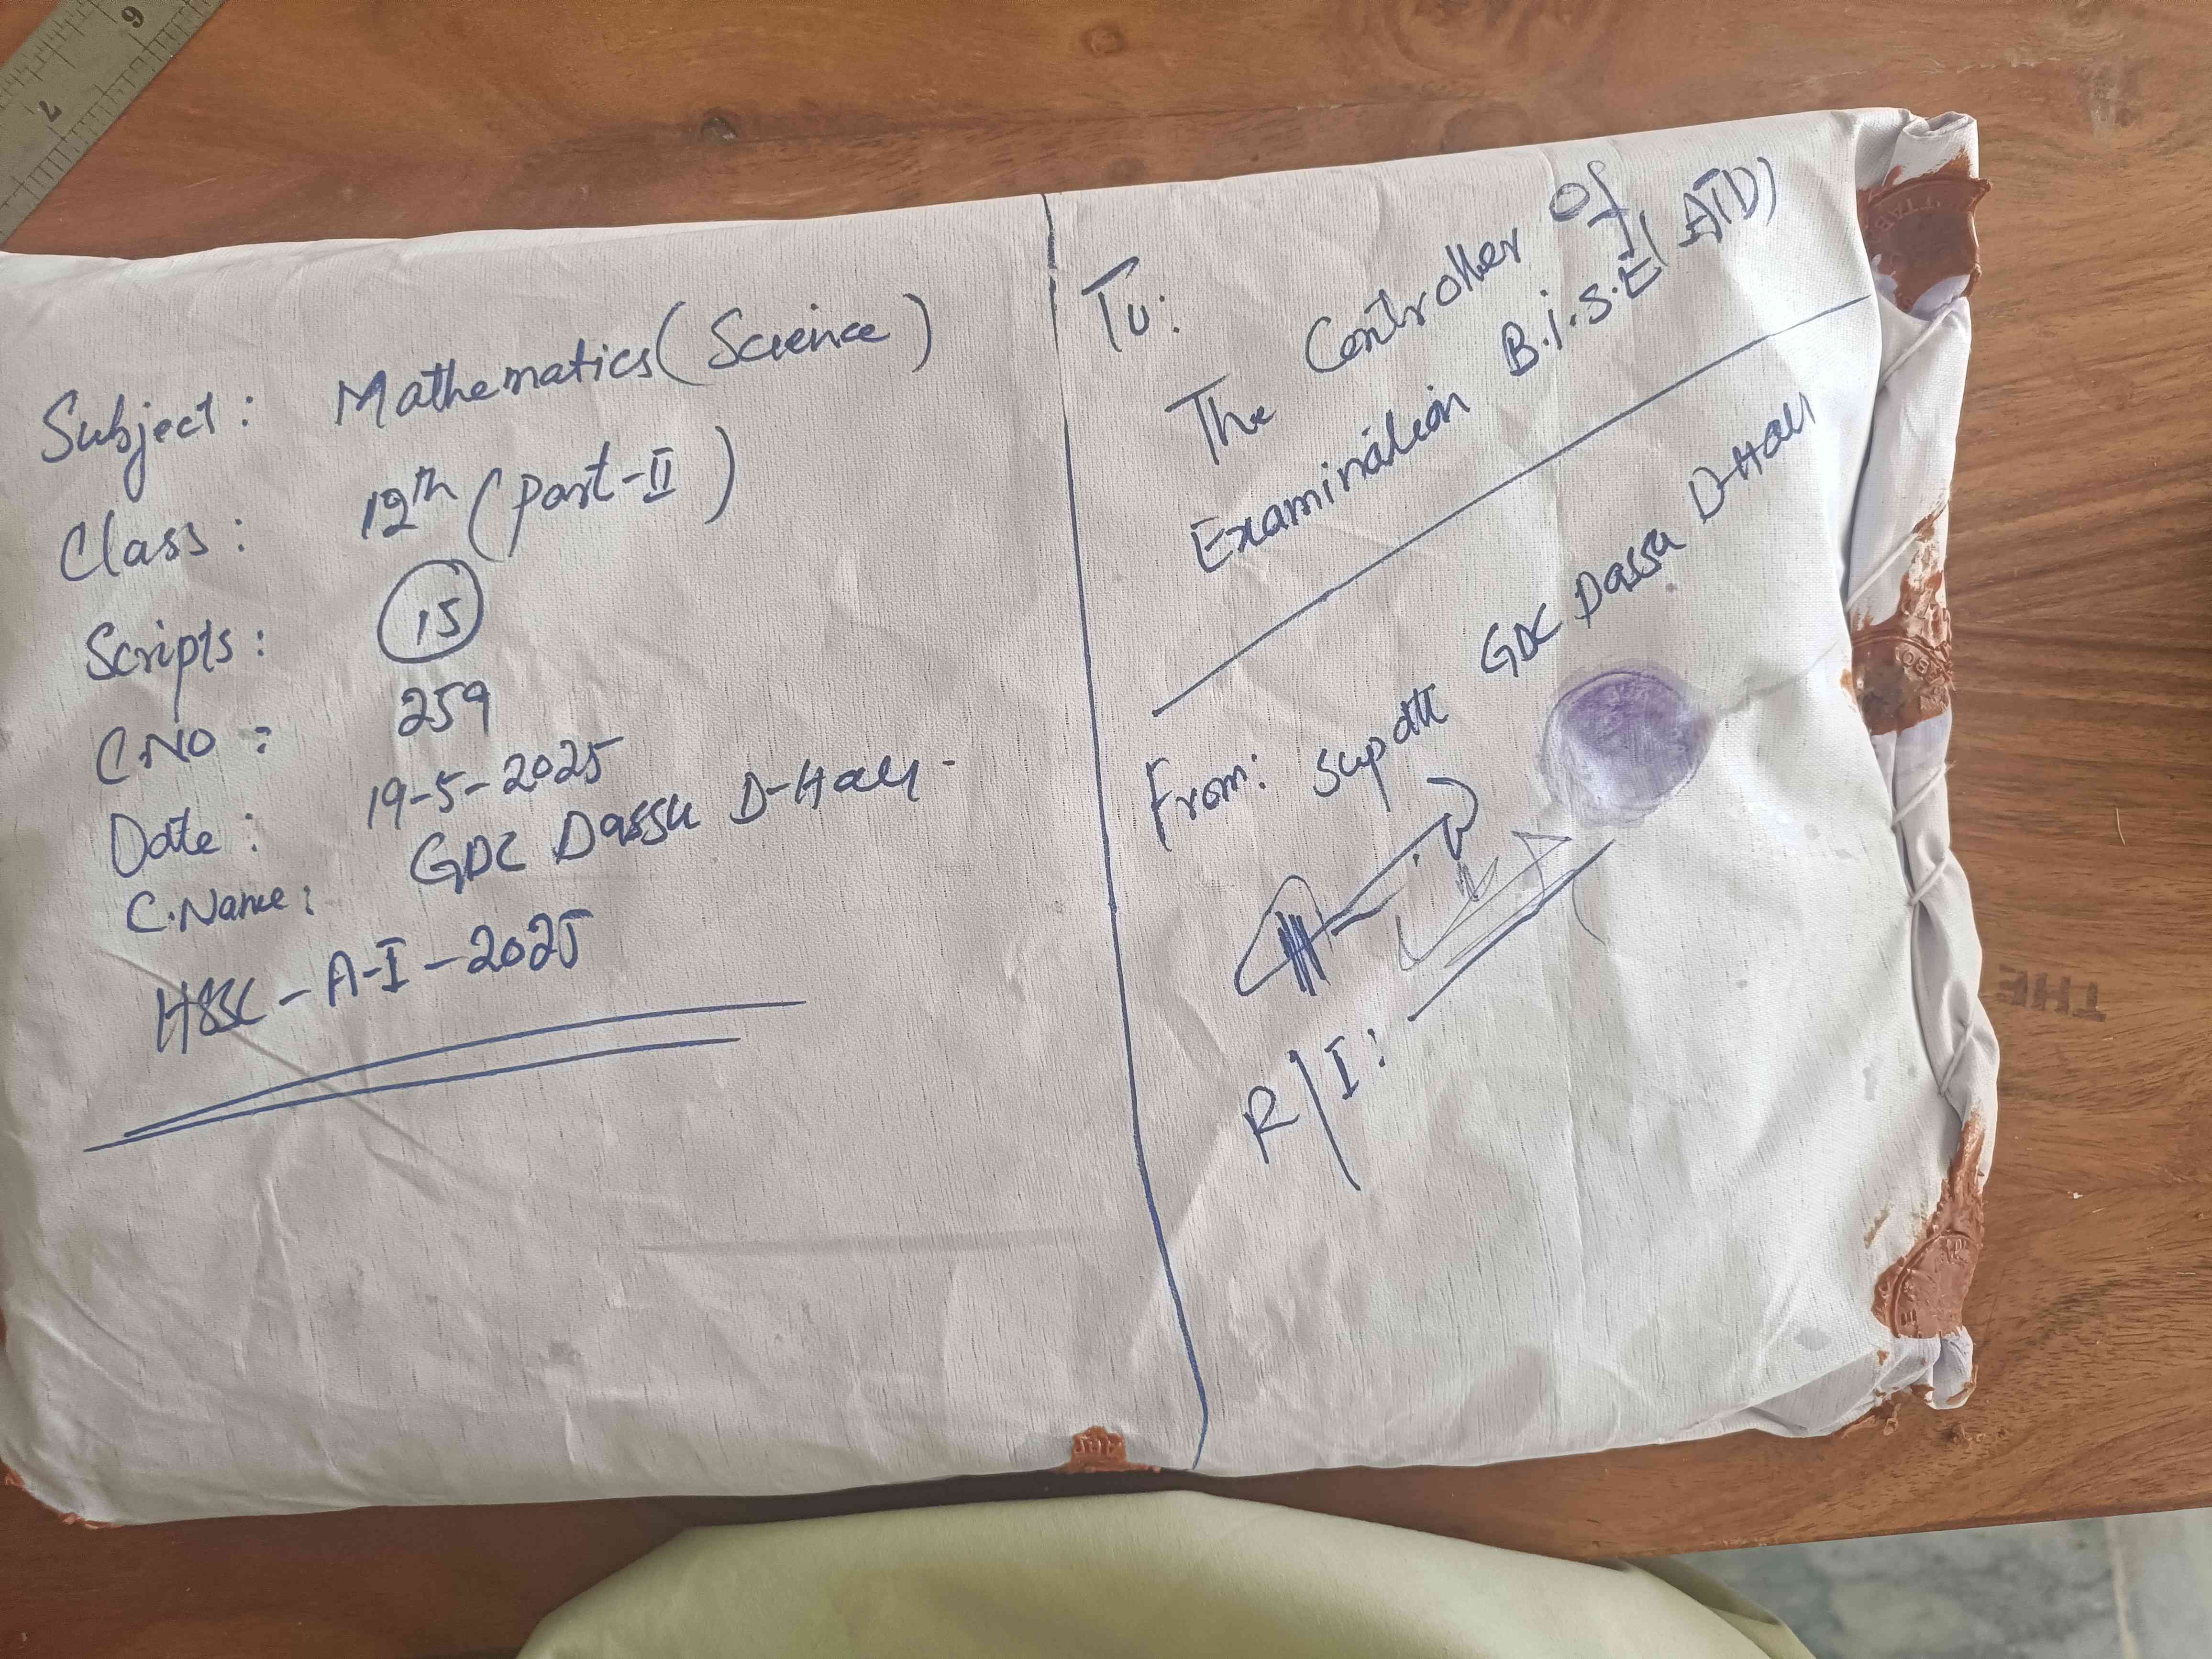 Subject: Mathematics (Science)
Class: 12th (Part-II)
Scripts: 15
C.NO: 259
Date: 19-5-2025
C.Name: GDC Dassu D-Hall.
HSSC-A-I-2025
To:
The Controller of
Examination B.I.S.E (ATD)
From: Supdtt GDC Dassu D-Hall
R/I:
THE
6
7